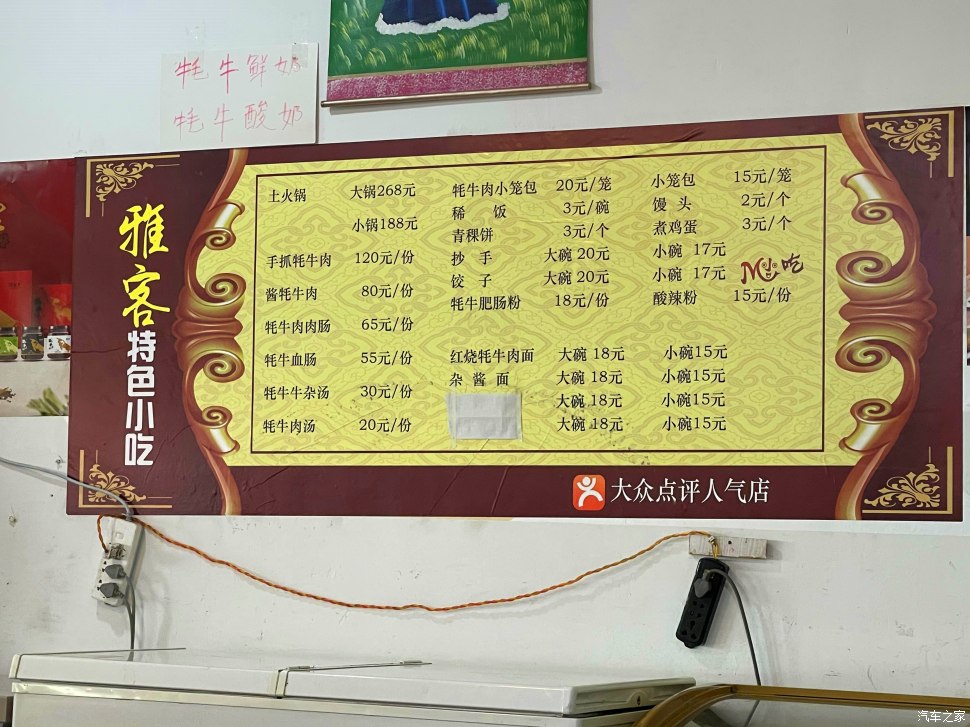 牦牛鲜奶
牦牛酸奶
雅客特色小吃
土火锅 大锅268元
小锅188元
手抓牦牛肉 120元/份
酱牦牛肉 80元/份
牦牛肉肉肠 65元/份
牦牛血肠 55元/份
牦牛牛杂汤 30元/份
牦牛肉汤 20元/份
牦牛肉小笼包 20元/笼
稀饭 3元/碗
青稞饼 3元/个
抄手 大碗20元 小碗 17元
饺子 大碗20元 小碗 17元
牦牛肥肠粉 18元/份
小笼包 15元/笼
馒头 2元/个
煮鸡蛋 3元/个
酸辣粉 15元/份
小吃
红烧牦牛肉面 大碗 18元 小碗15元
杂酱面 大碗 18元 小碗15元
大碗 18元 小碗15元
大碗 18元 小碗15元
大众点评人气店
汽车之家